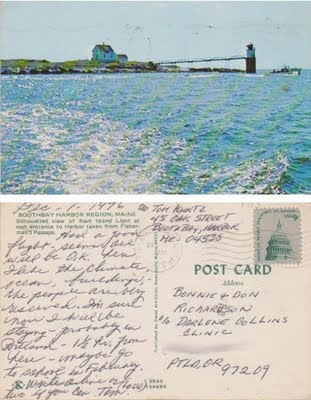 Dec. 1 - 1976
BOOTHBAY HARBOR REGION, MAINE
Silhouetted view of Ram Island Light at
east entrance to Harbor taken from Fisher-
man's Passage.
Had a good
flight - seems
will be O.K. here
I like the climate,
ocean, buildings -
the people are very
reserved. I'm sure
now I will be
staying - probably in
Boston - 1½ hr. from
here - may go
to school in February.
Write a line or
two if you can. Love, Tom
c/o TOM KUNTZ
45 OAK STREET
BOOTHBAY HARBOR
ME. 04538
POST CARD
Address
BONNIE & DON
RICHARDSON
c/o DARLENE COLLINS
CLINIC
PTLD, OR
97209